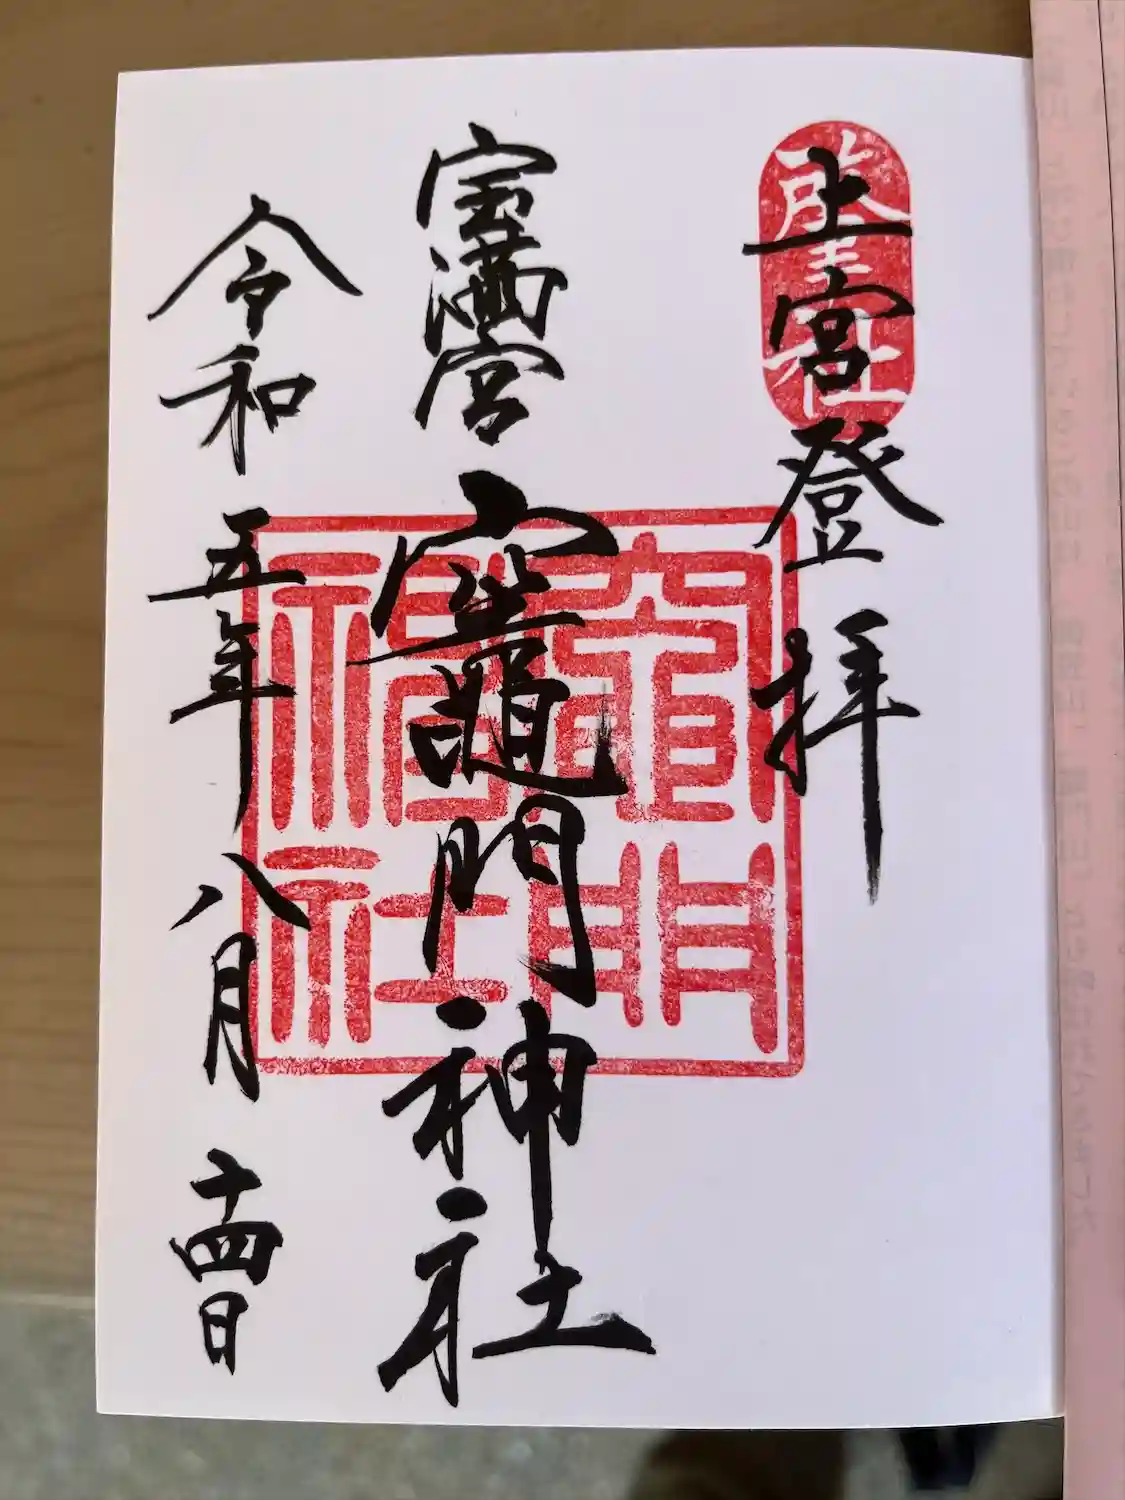 上宮登拝
宝満宮 竈門神社
令和五年八月十四日
竈門神社